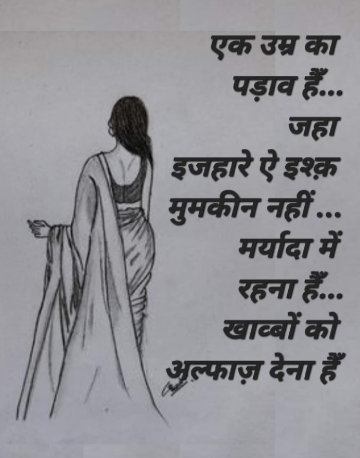 एक उम्र का
पड़ाव हैँ...
जहा
इजहारे ऐ इश्क़
मुमकीन नहीं ...
मर्यादा में
रहना हैँ...
खाव्बों को
अल्फाज़ देना हैँ